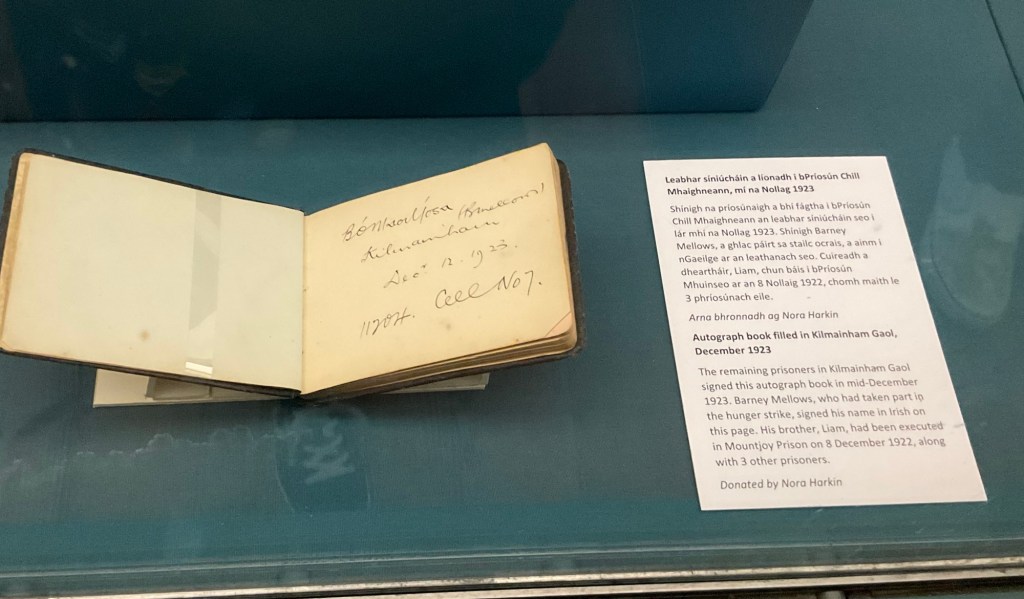 Kilmainham
Decr 12. 1923.
11204. Cell No 7.
Leabhar síniúcháin a líonadh i bPríosún Chill
Mhaighneann, mí na Nollag 1923
Shínigh na príosúnaigh a bhí fágtha i bPríosún
Chill Mhaighneann an leabhar síniúcháin seo i
lár mhí na Nollag 1923. Shínigh Barney
Mellows, a ghlac páirt sa stailc ocrais, a ainm i
nGaeilge ar an leathanach seo. Cuireadh a
dheartháir, Liam, chun báis i bPríosún
Mhuinseo ar an 8 Nollaig 1922, chomh maith le
3 phríosúnach eile.
Arna bhronnadh ag Nora Harkin
Autograph book filled in Kilmainham Gaol,
December 1923
The remaining prisoners in Kilmainham Gaol
signed this autograph book in mid-December
1923. Barney Mellows, who had taken part in
the hunger strike, signed his name in Irish on
this page. His brother, Liam, had been executed
in Mountjoy Prison on 8 December 1922, along
with 3 other prisoners.
Donated by Nora Harkin